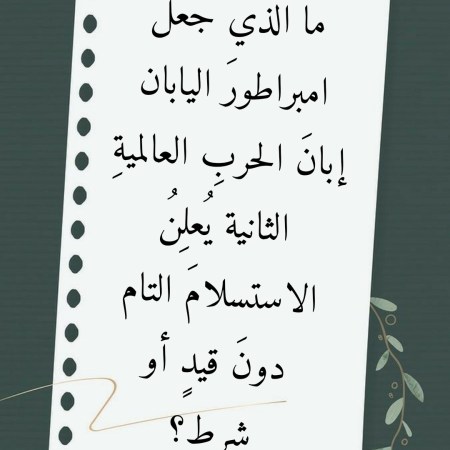 ما الذي جعل
امبراطورَ اليابان
إبانَ الحربِ العالميةِ
الثانية يُعلِنُ
الاستسلامَ التام
دونَ قيدٍ أو
شرطٍ؟